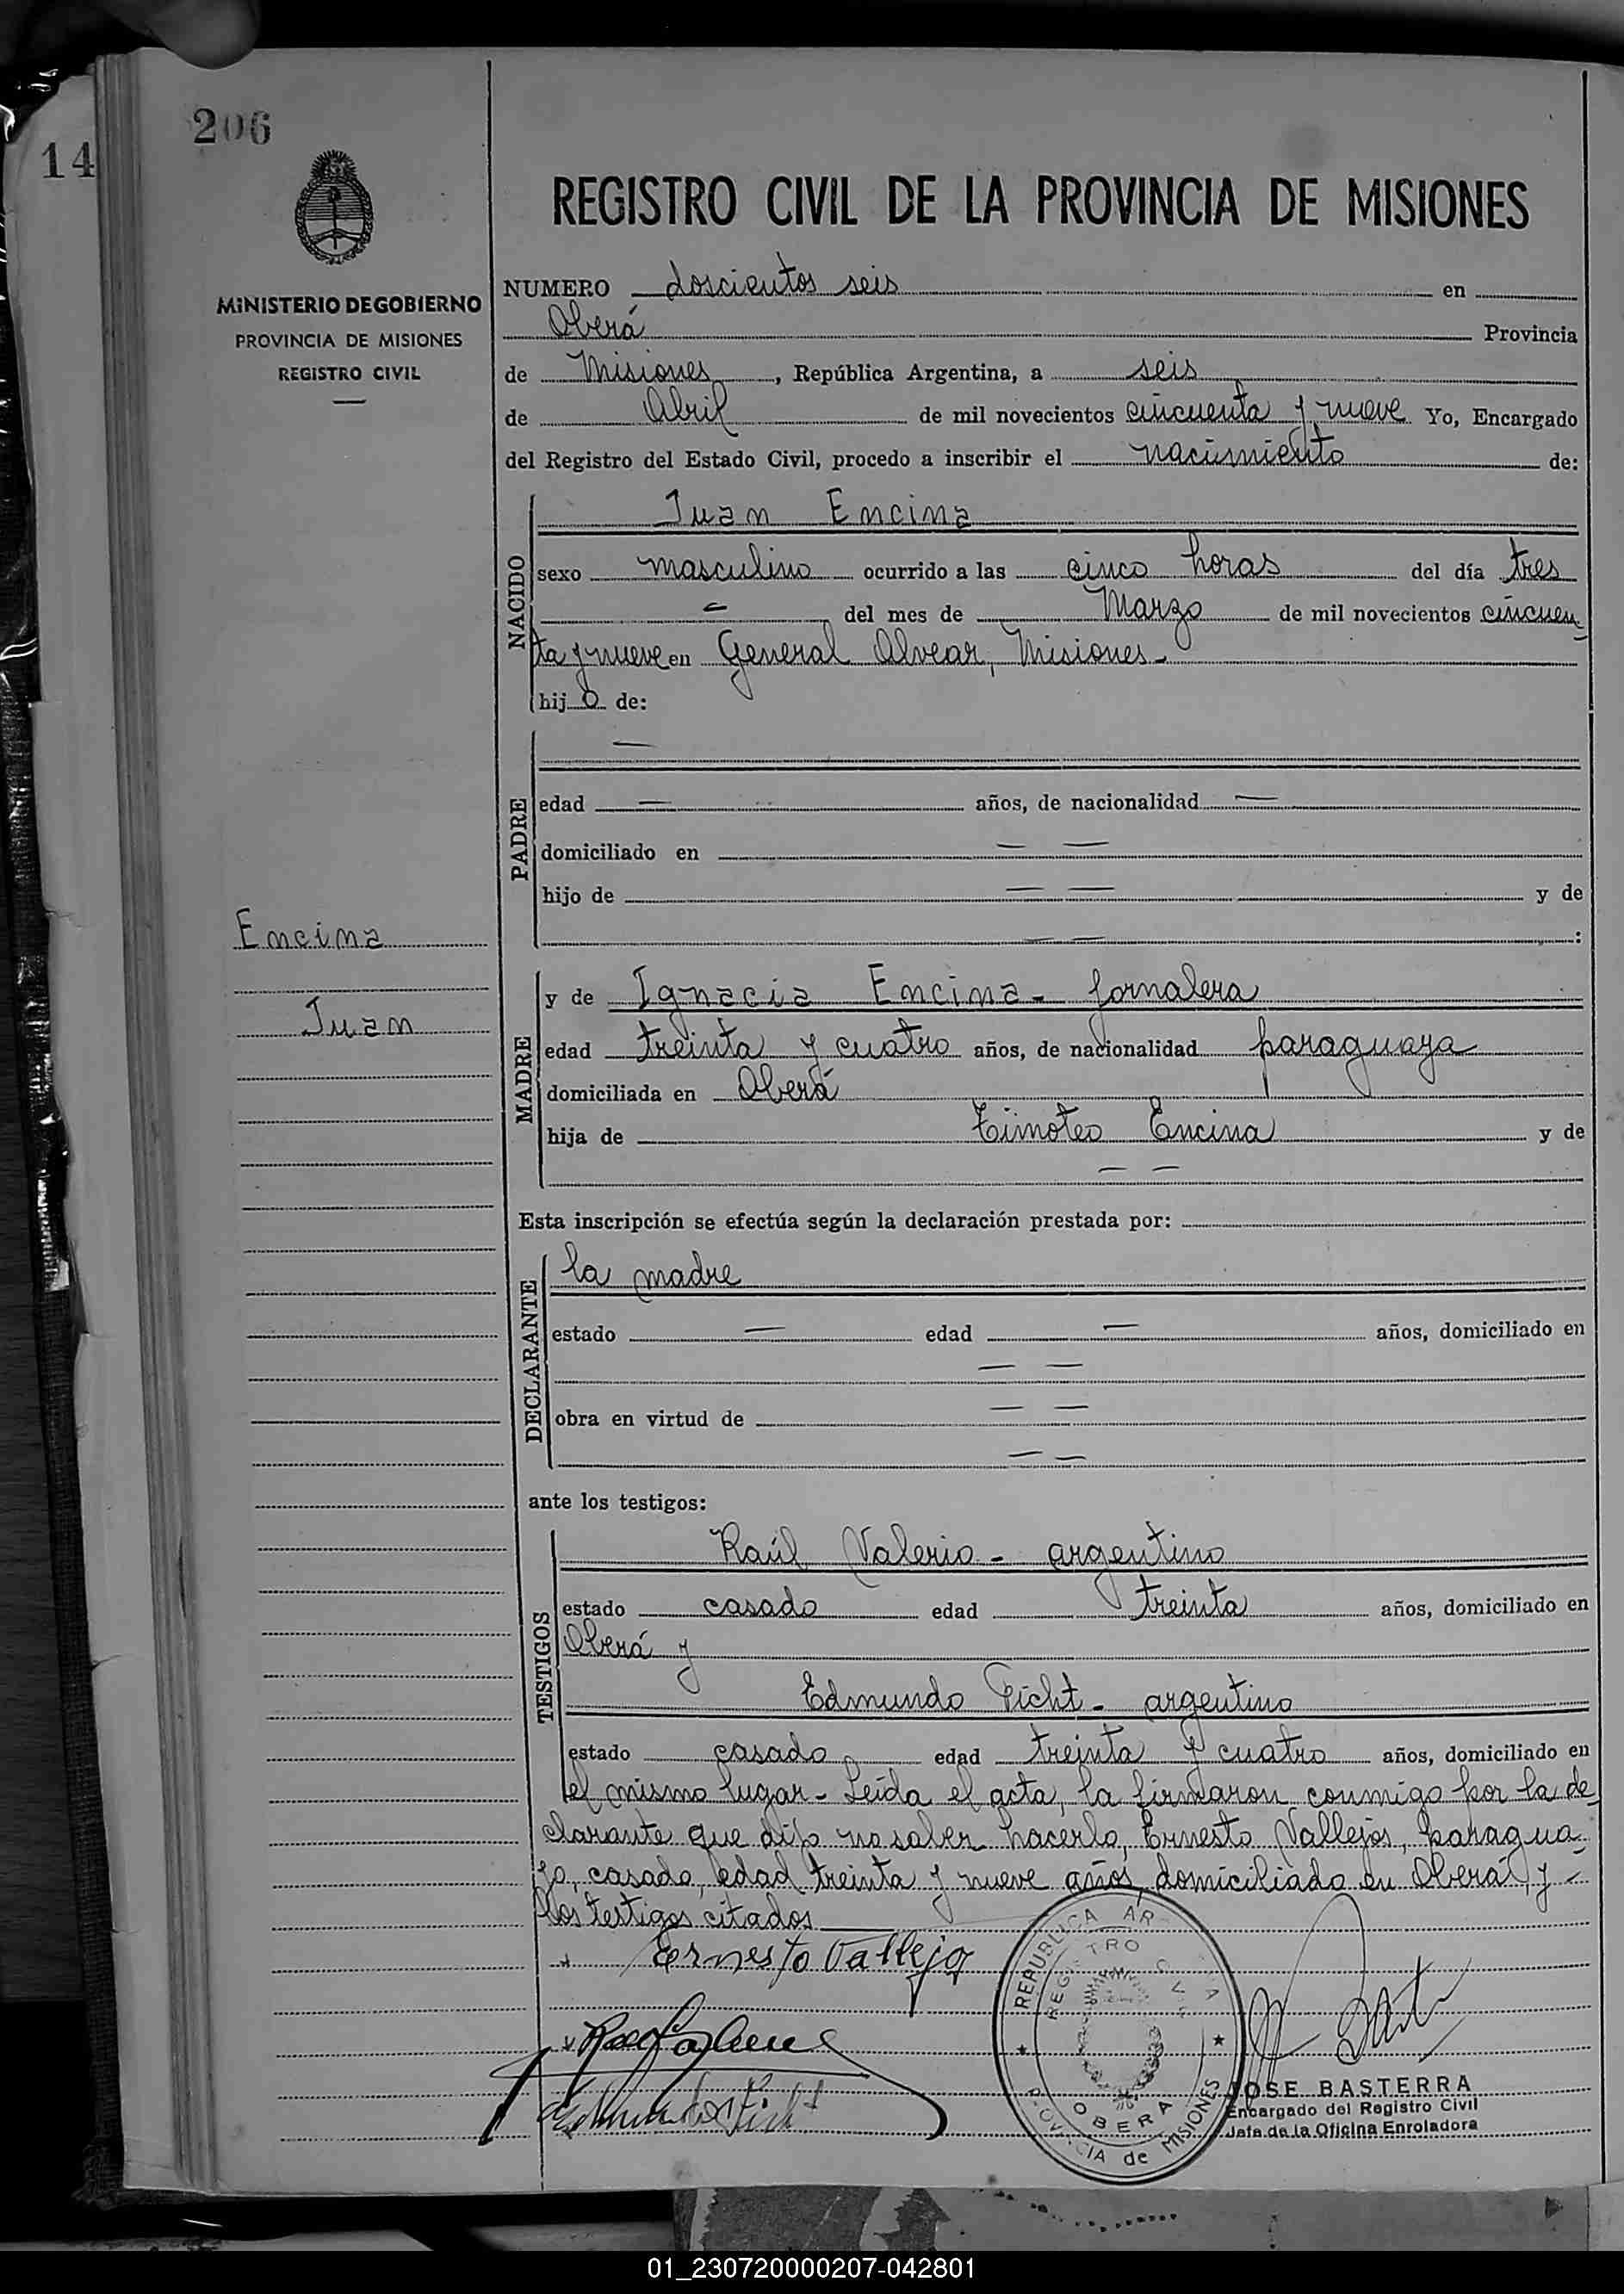 206
14
REGISTRO CIVIL DE LA PROVINCIA DE MISIONES
MINISTERIO DE GOBIERNO
PROVINCIA DE MISIONES
REGISTRO CIVIL
NUMERO doscientos seis en
Oberá Provincia
de Misiones, República Argentina, a seis
de Abril de mil novecientos cincuenta y nueve Yo, Encargado
del Registro del Estado Civil, procedo a inscribir el nacimiento de:
NACIDO
Juan Encina
sexo masculino ocurrido a las cinco horas del día tres
— del mes de Marzo de mil novecientos cincuen
ta y nueve en General Alvear, Misiones-
hijo de:
PADRE
—
edad — años, de nacionalidad —
domiciliado en — —
hijo de — — y de
— — :
Encina
Juan
MADRE
y de Ignacia Encina - jornalera
edad treinta y cuatro años, de nacionalidad paraguaya
domiciliada en Oberá
hija de Timoteo Encina y de
— —
Esta inscripción se efectúa según la declaración prestada por:
DECLARANTE
la madre
estado — edad — años, domiciliado en
— —
obra en virtud de — —
— —
ante los testigos:
TESTIGOS
Raúl Valerio - argentino
estado casado edad treinta años, domiciliado en
Oberá y
Edmundo Picht - argentino
estado casado edad treinta y cuatro años, domiciliado en
el mismo lugar - Leída el acta, la firmaron conmigo por la de
clarante que dijo no saber hacerlo, Ernesto Vallejos, paragua
yo, casado, edad treinta y nueve años, domiciliado en Oberá, y -
los testigos citados
Ernesto Vallejo
REPUBLICA AR A
REGISTRO CIVIL
OBERA
PROVINCIA de MISIONES
JOSE BASTERRA
Encargado del Registro Civil
Jefe de la Oficina Enroladora
01_230720000207-042801